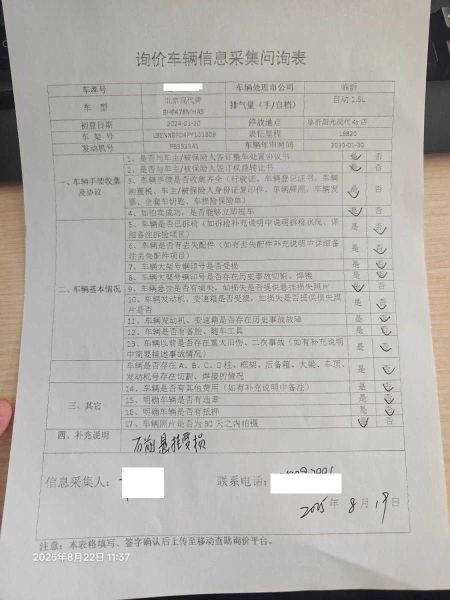 询价车辆信息采集问询表
车牌号 车辆处理市公司 临沂
车 型 北京现代牌 排气量（手/自档） 自动 1.5L
初登日期 2024-01-20 停放地点 临沂阳光现代4s店
车 架 号 表征里程 18820
发动机号 车辆年审时间
一、车辆手续收集及协议
1、是否与车主/被保险人签订整车处置协议书 是 否
2、是否与车主/被保险人签订权益转让书 是 否
3、车辆手续是否收集齐全（行驶证、车辆登记证书、车辆
购置税、车主/被保险人身份证复印件、车辆牌照、车辆发
票、全套车钥匙、车损险保险单） 是 否
4、如拍卖成功，是否能够立即提车 是 否
二、车辆基本情况
5、车辆是否已拆检（如拆检补充说明中说明拆检状况、详
细备注拆检项目） 是 否
6、车辆是否有丢失配件（如有丢失配件补充说明中详细备
注丢失配件项目） 是 否
7、车辆大架号钢印号是否受损 是 否
8、车辆大架号钢印号是否存在历史事故切割、焊接 是 否
9、车辆悬挂是否有损失，如损失是否提供悬挂损失照片 是 否
10、车辆发动机、变速箱是否受损，如损失是否提供损失照
片是否 是 否
11、车辆发动机、变速箱是否存在历史事故故障 是 否
12、车辆是否有备胎、随车工具 是 否
13、车辆以前是否存在重大旧伤、二次事故（如有补充说明
中简要描述事故情况） 是 否
车辆是否存在 A、B、C、D 柱、框架、后备箱、大梁、车顶、
发动机号存在切割、焊接的情况 是 否
三、其它
14、车辆是否有其他费用（如有补充说明中备注） 是 否
15、明确车辆是否有违章 是 否
16、明确车辆是否有抵押 是 否
17、车辆照片是否为 30 天之内拍摄 是 否
四、补充说明 右前悬挂受损
信息采集人： 联系电话：
2025 年 8 月 19 日
注意：本表格填写、签字确认后上传至移动查勘询价平台。
2025年8月22日 11:37